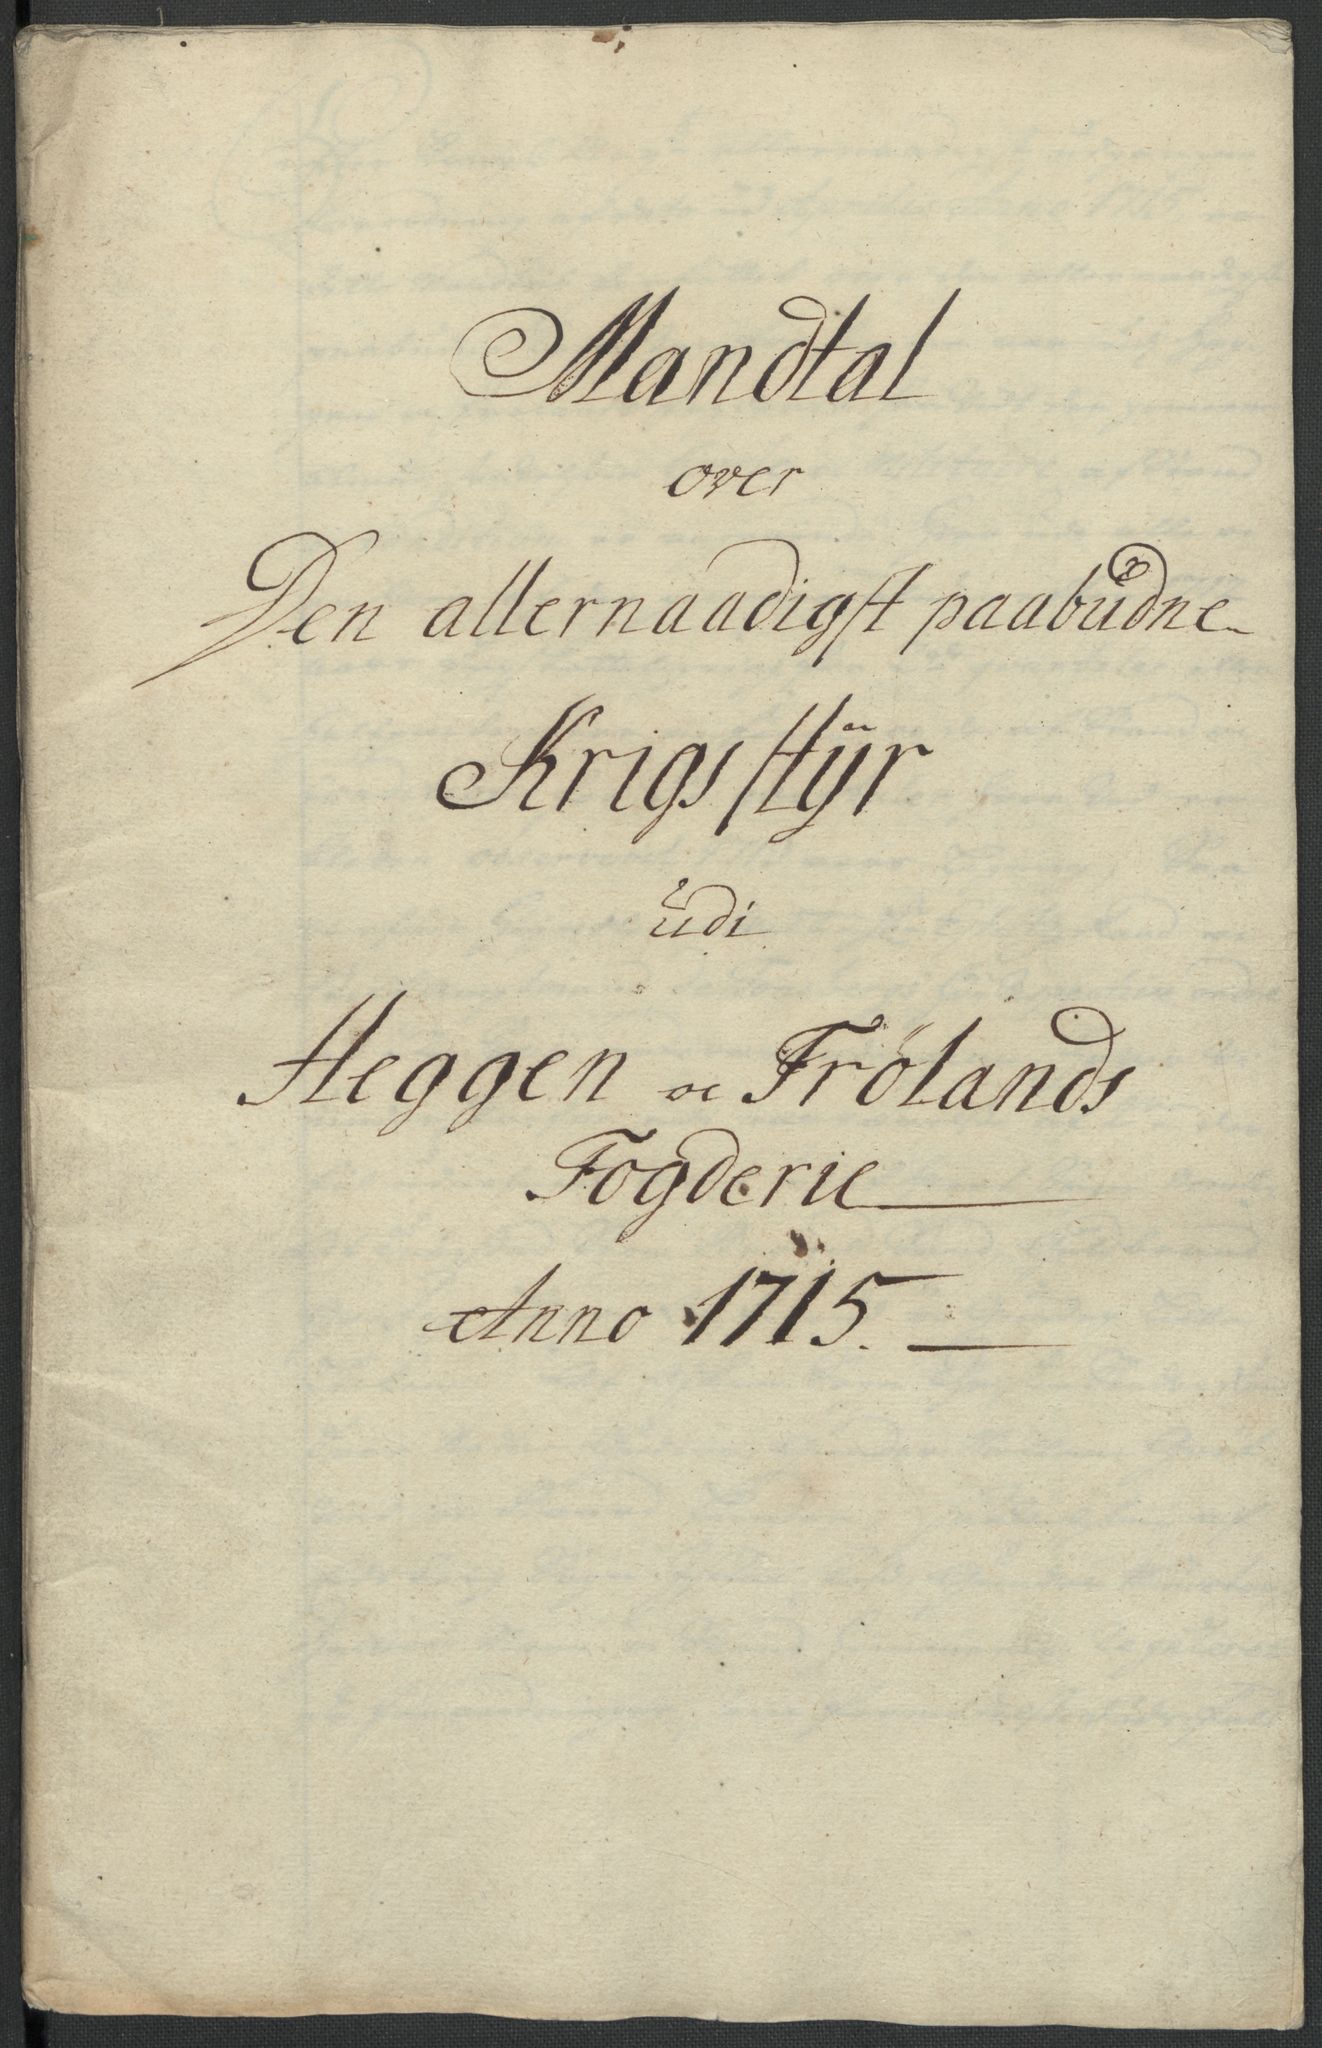 Mandtal
over
Den allernaadigst paabudne
Krigs styr
udi
Heggen oc Frölands
Fogderie
Anno 1715.